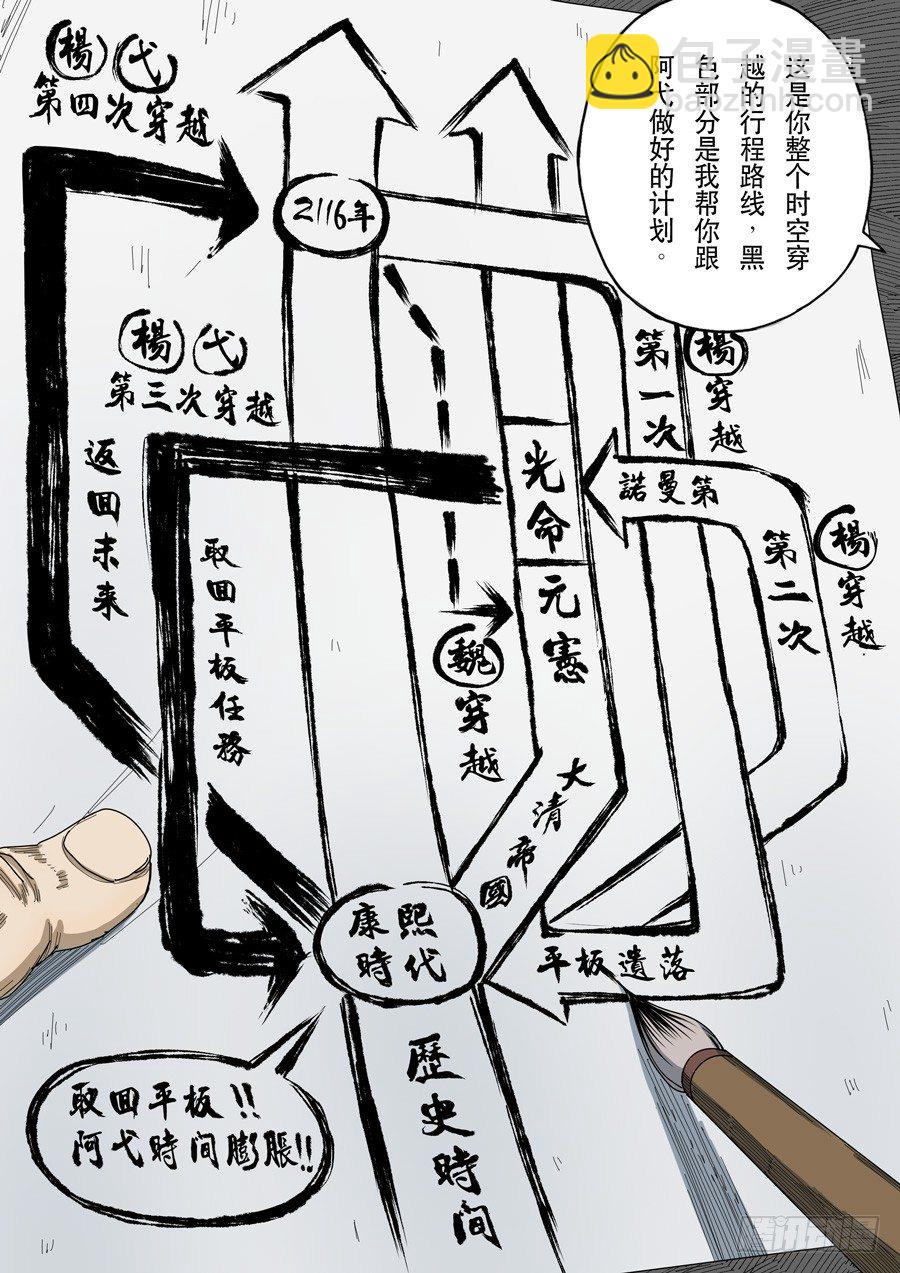 这是你整个时空穿
越的行程路线，黑
色部分是我帮你跟
阿弋做好的计划。
包子漫畫
baozimh.com
楊 弋
第四次穿越
2116年
楊 弋
第三次穿越
返回未来
取回平板任務
第一次
楊穿越
諾曼第
第二次
楊穿越
光命
元憲
魏穿越
大清帝國
康熙
時代
平板遺落
歷史時间
取回平板!!
阿弋時间膨脹!!
腾讯动漫